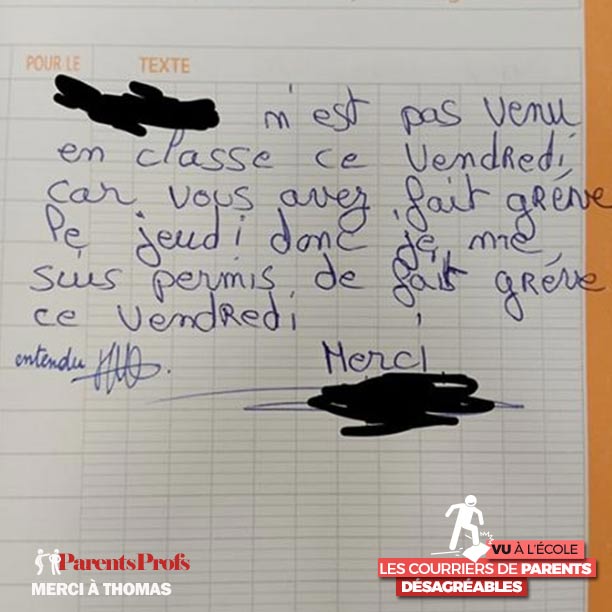 POUR LE TEXTE
m'est pas venu
en classe ce vendredi
car vous avez fait grève
le jeudi donc je me
suis permis de fait grève
ce vendredi
entendu
Merci
ParentsProfs
MERCI À THOMAS
VU À L'ÉCOLE
LES COURRIERS DE PARENTS
DÉSAGRÉABLES